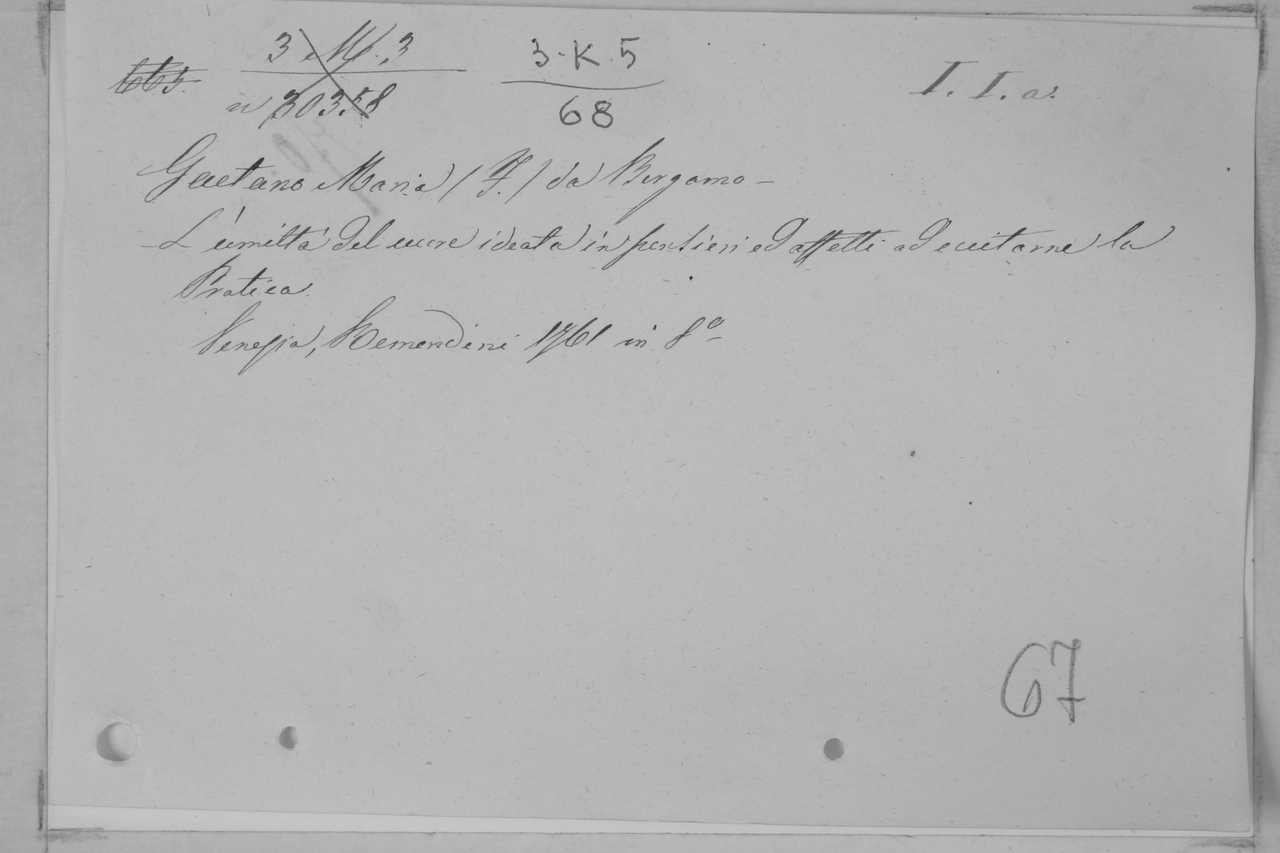 3 M. 3
3-K.5
I. I. a.
68
Gaetano Maria (F.) da Bergamo -
- L'umiltà del cuore ideata in pensieri ed affetti ad eccitarne la
Pratica.
Venezia, Remondini 1761 in 8º -
67